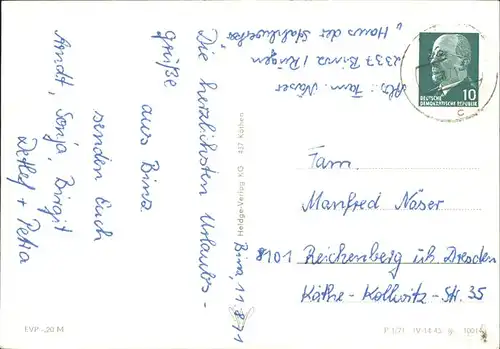 Binz, 11.8.71
Die herzlichsten Urlaubs-
grüße
aus Binz
senden Euch
Arndt, Sonja, Birgit
Detlef + Petra
Abs.: Fam. Näser
2337 Binz / Rügen
"Haus der Stahlwerker"
DEUTSCHE
DEMOKRATISCHE REPUBLIK
10
Fam.
Manfred Näser
8101 Reichenberg üb. Dresden
Käthe-Kollwitz-Str. 35
Heldge-Verlag KG 437 Köthen
EVP -,20 M